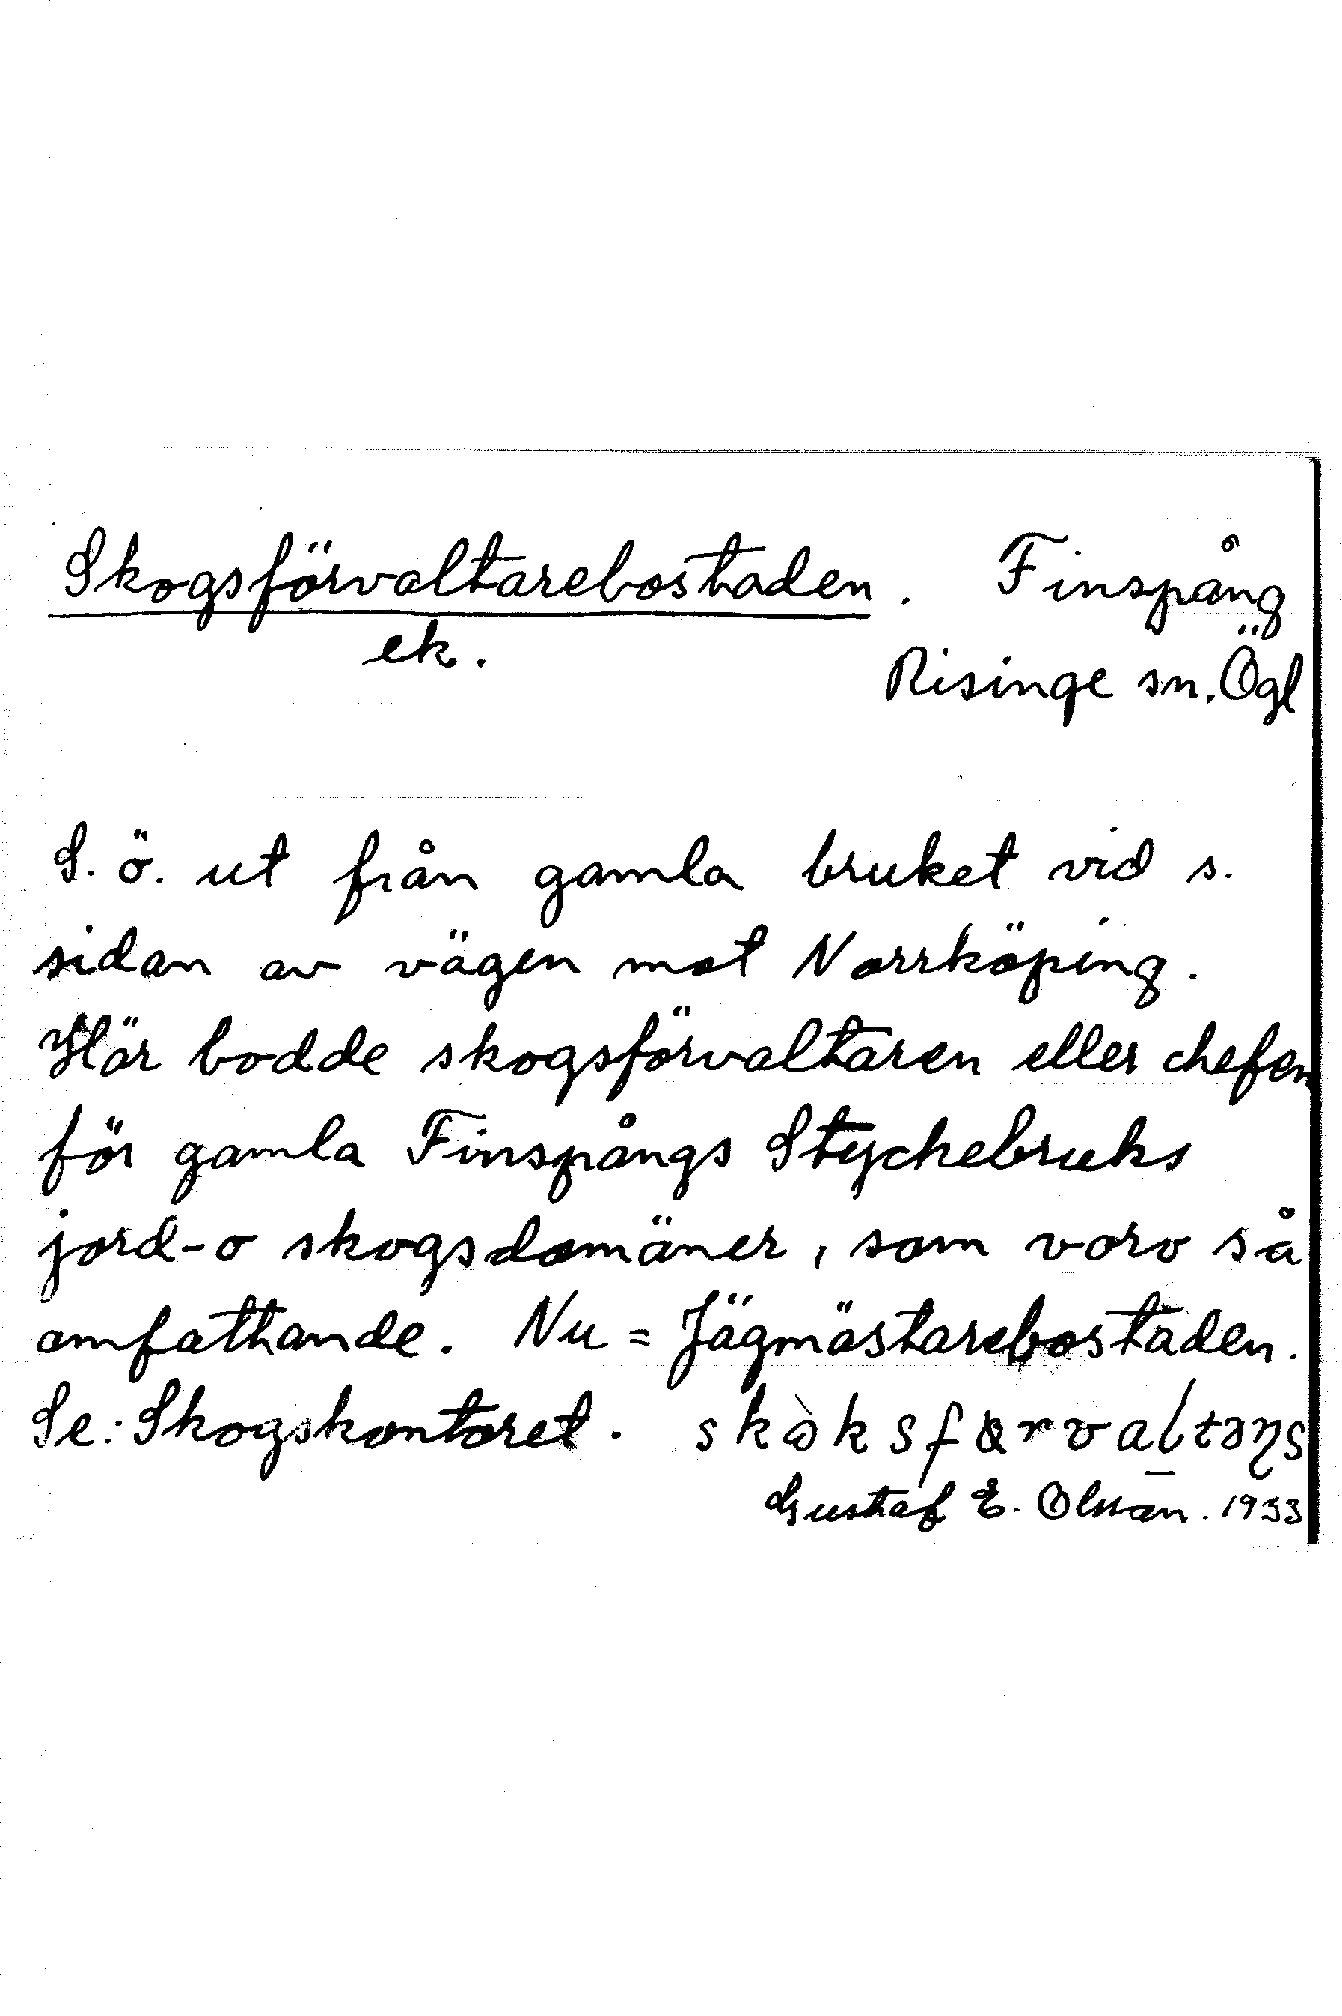 Skogsförvaltarebostaden. Finspång
ek. Risinge sn. Ögl
S. ö. ut från gamla bruket vid s.
sidan av vägen mot Norrköping.
Här bodde skogsförvaltaren eller chefen
för gamla Finspångs Styckebruks
jord-o skogsdomäner, som voro så
omfattande. Nu = Jägmästarebostaden.
Se: Skogskontoret.
Gustaf E. Olsson. 1933